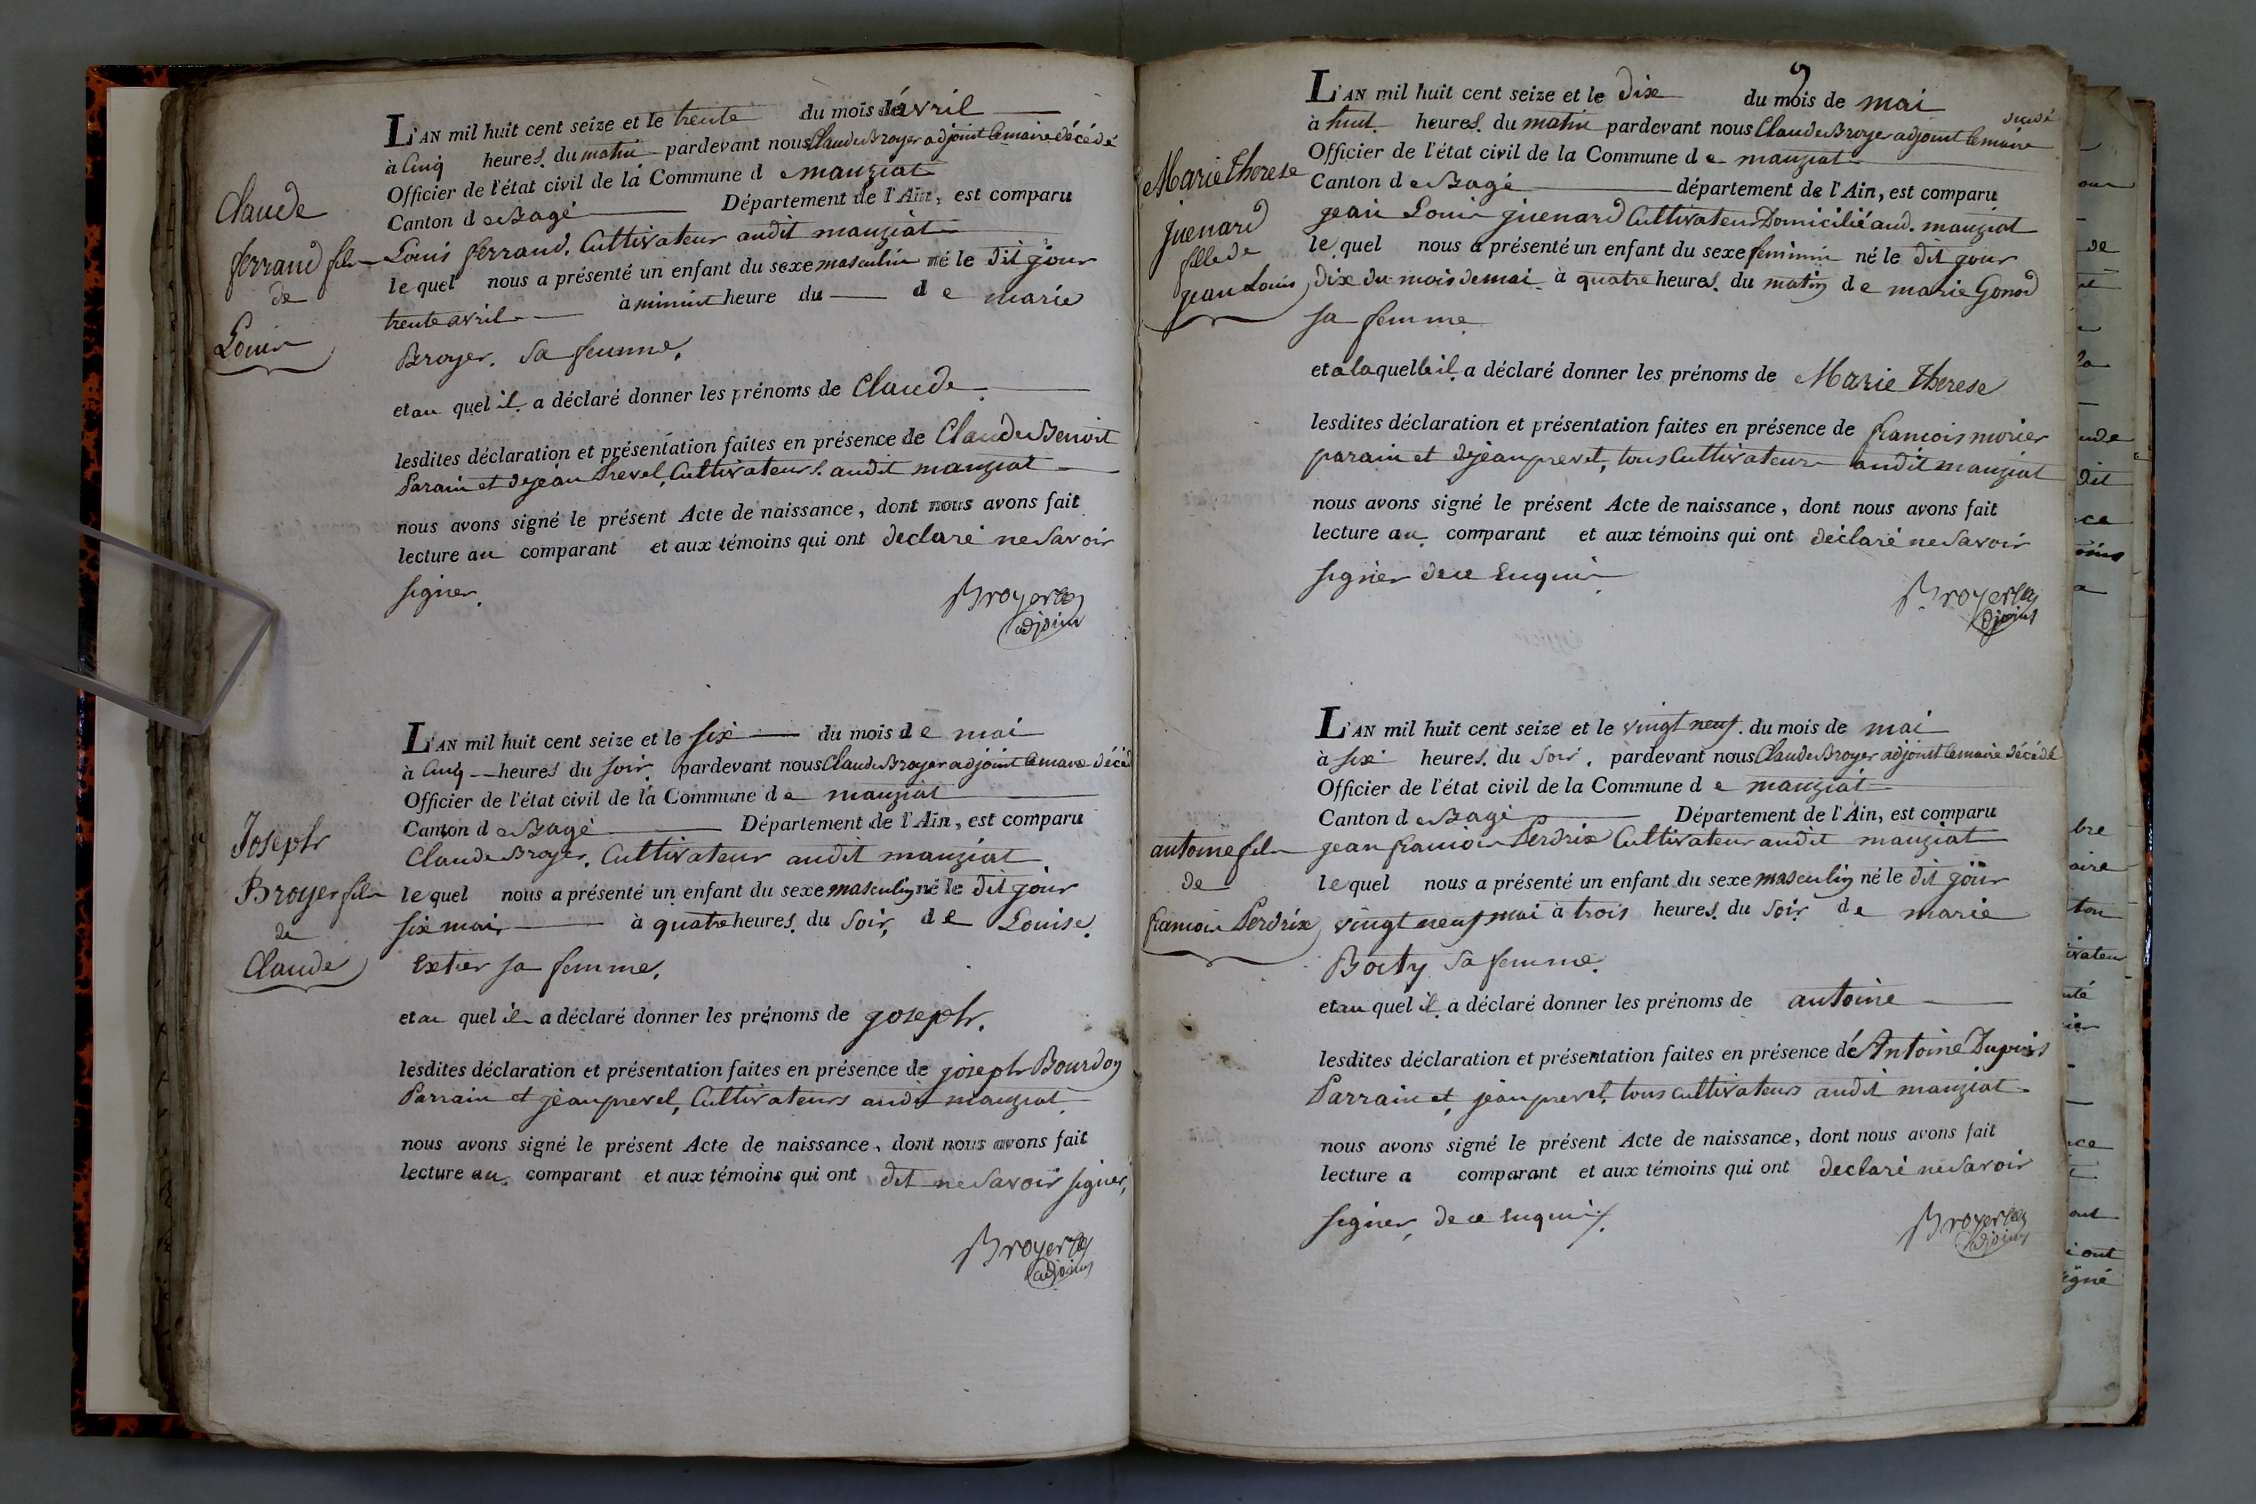 Claude
ferrand fils
de
Louis
L'AN mil huit cent seize et le trente du mois d'avril
à Cinq heures du matin pardevant nous Claude Broyer adjoint le maire décédé
Officier de l'état civil de la Commune de manziat
Canton de Bagé Département de l'Ain, est comparu
Louis ferrand, Cultivateur audit manziat
lequel nous a présenté un enfant du sexe masculin né le dit jour
trente avril à minuit heure du de marie
Broyer, sa femme,
et au quel il a déclaré donner les prénoms de Claude
lesdites déclaration et présentation faites en présence de Claude Benoit
Parain et de jean Prevel, Cultivateurs audit manziat
nous avons signé le présent Acte de naissance, dont nous avons fait
lecture au comparant et aux témoins qui ont declaré ne Savoir
signer.
Broyer
adjoint
Joseph
Broyer fils
de
Claude
L'AN mil huit cent seize et le six du mois de mai
à Cinq heures du soir pardevant nous Claude Broyer adjoint le maire décé
Officier de l'état civil de la Commune de manziat
Canton de Bagé Département de l'Ain, est comparu
Claude Broyer, Cultivateur audit manziat
lequel nous a présenté un enfant du sexe masculin né le dit jour
six mai à quatre heures du Soir, de Louise
Extier sa femme,
et au quel il a déclaré donner les prénoms de joseph.
lesdites déclaration et présentation faites en présence de joseph Bourdon
Parrain et jean prevel, Cultivateurs audit manziat
nous avons signé le présent Acte de naissance, dont nous avons fait
lecture au comparant et aux témoins qui ont dit ne Savoir signer,
Broyer
adjoint
9
Marie therese
juenard
fille de
jean Louis
L'AN mil huit cent seize et le dix du mois de mai
à huit heures du matin pardevant nous Claude Broyer adjoint le maire
Officier de l'état civil de la Commune de manziat
Canton de Bagé département de l'Ain, est comparu
jean Louis juenard Cultivateur Domicilié aud. manziat
lequel nous a présenté un enfant du sexe feminin né le dit jour
dix du mois de mai à quatre heures du matin de marie Gonod
sa femme
et a laquelle il a déclaré donner les prénoms de Marie therese
lesdites déclaration et présentation faites en présence de francois morier
parain et de jean prevel, tous Cultivateurs audit manziat
nous avons signé le présent Acte de naissance, dont nous avons fait
lecture au comparant et aux témoins qui ont déclaré ne Savoir
signer de ce Enquis
Broyer
adjoint
antoine fils
de
francois Perdrix
L'AN mil huit cent seize et le vingt neuf du mois de mai
à six heures du Soir, pardevant nous Claude Broyer adjoint le maire décédé
Officier de l'état civil de la Commune de manziat
Canton de Bagé Département de l'Ain, est comparu
jean francois Perdrix Cultivateur audit manziat
lequel nous a présenté un enfant du sexe masculin né le dit jour
vingt neuf mai à trois heures du Soir de marie
Boity sa femme.
et au quel il a déclaré donner les prénoms de antoine
lesdites déclaration et présentation faites en présence de Antoine Dupuis
Parrain et jean prevel, tous cultivateurs audit manziat
nous avons signé le présent Acte de naissance, dont nous avons fait
lecture a comparant et aux témoins qui ont declaré ne Savoir
signer, de ce Enquis.
Broyer
adjoint